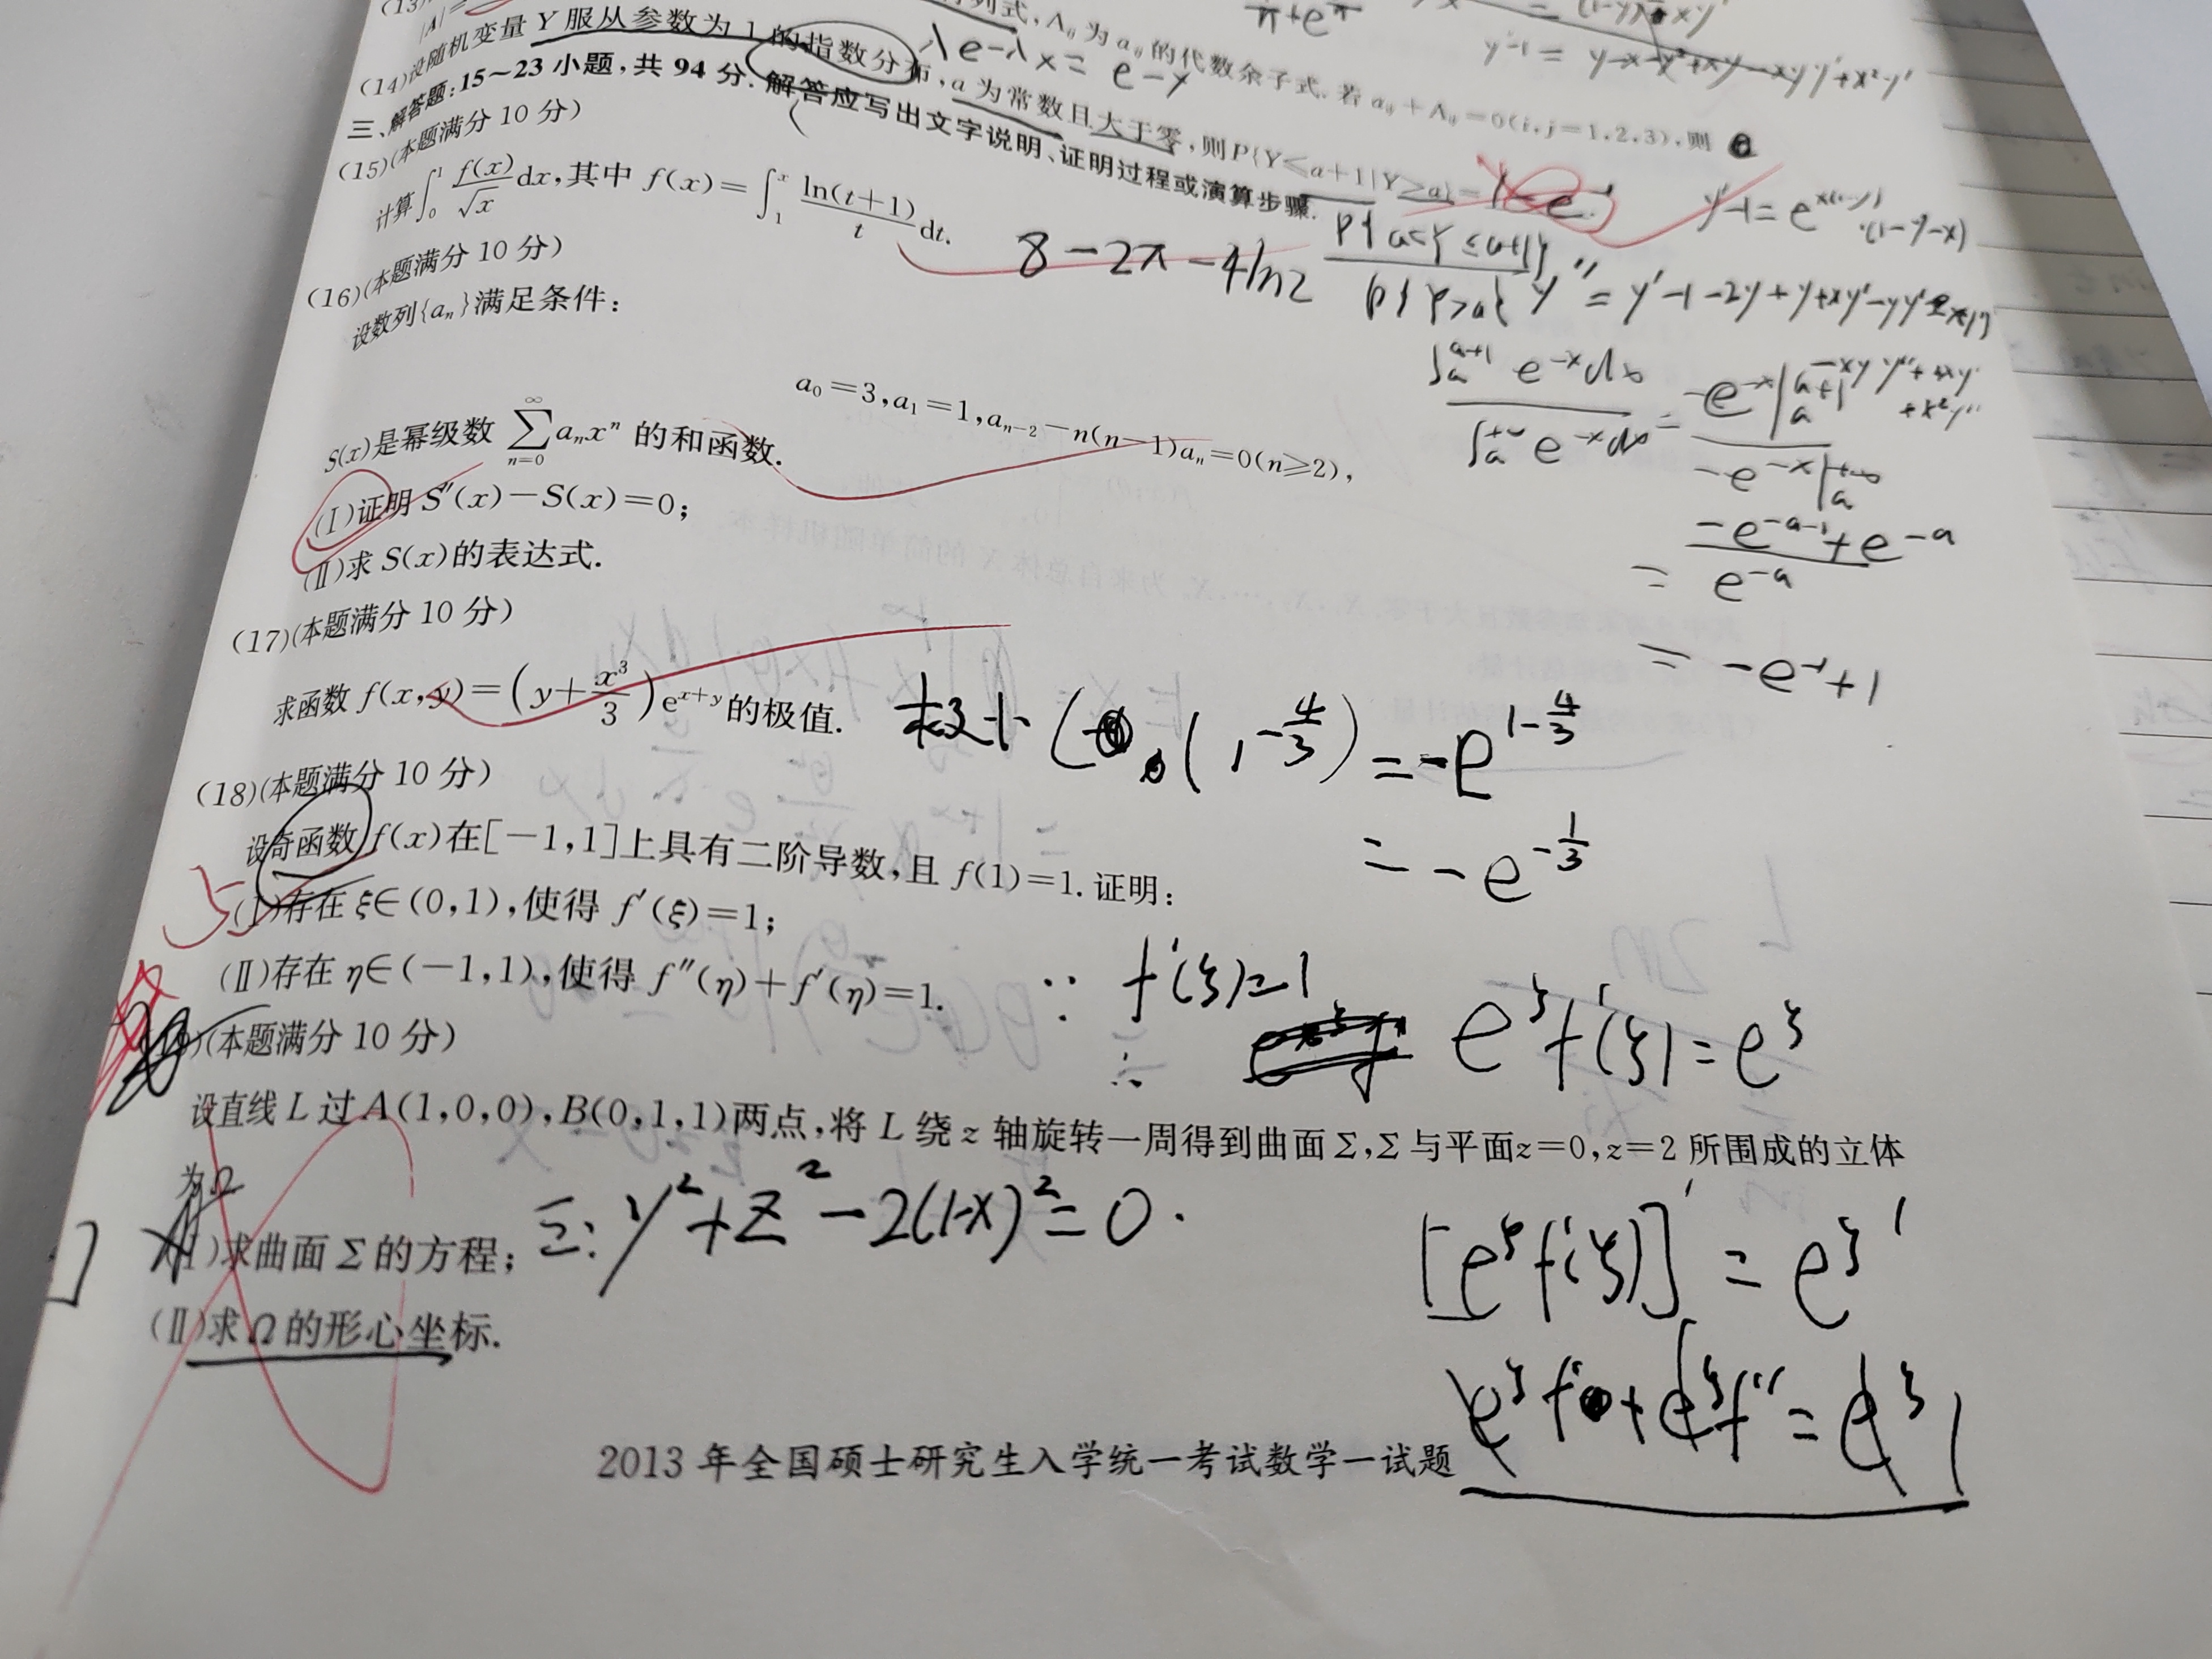 (13)
|A|=
行列式,A_{ij} 为 a_{ij} 的代数余子式.若 a_{ij}+A_{ij}=0(i,j=1,2,3),则
(14)设随机变量 Y 服从参数为 1 的指数分布,a 为常数且大于零,则 P{Y≤a+1|Y>a}=
λe-λx = e-x
三、解答题:15~23 小题,共 94 分.解答应写出文字说明、证明过程或演算步骤.
(15)(本题满分 10 分)
计算∫_0^1 f(x)/√x dx,其中 f(x)=∫_1^x ln(t+1)/t dt.
8-2π-4ln2
P{a<Y≤a+1}
P{Y>a}
y'-1=e^{x(1-y)}·(1-y-x)
(16)(本题满分 10 分)
设数列{a_n}满足条件:
a_0=3,a_1=1,a_{n-2}-n(n-1)a_n=0(n≥2),
S(x)是幂级数 ∑_{n=0}^∞ a_n x^n 的和函数.
(Ⅰ)证明 S″(x)-S(x)=0;
(Ⅱ)求 S(x)的表达式.
∫_a^{a+1} e^{-x}dx
∫_a^{+∞} e^{-x}dx
= -e^{-x}|_a^{a+1}
-e^{-x}|_a^{+∞}
= -e^{-a-1}+e^{-a}
e^{-a}
= -e^{-1}+1
(17)(本题满分 10 分)
求函数 f(x,y)=(y+x^3/3)e^{x+y}的极值.
极小 (1,-4/3) = -e^{1-4/3}
= -e^{-1/3}
(18)(本题满分 10 分)
设奇函数 f(x)在[-1,1]上具有二阶导数,且 f(1)=1.证明:
5
(Ⅰ)存在 ξ∈(0,1),使得 f′(ξ)=1;
(Ⅱ)存在 η∈(-1,1),使得 f″(η)+f′(η)=1.
∵ f'(ξ)=1
∴ e^ξ f'(ξ)=e^ξ
(本题满分 10 分)
设直线 L 过 A(1,0,0),B(0,1,1)两点,将 L 绕 z 轴旋转一周得到曲面 Σ,Σ 与平面z=0,z=2 所围成的立体
为 Ω
(Ⅰ)求曲面 Σ 的方程;
Σ: y²+z²-2(1-x)²=0.
[e^ξ f'(ξ)]' = e^ξ'
(Ⅱ)求 Ω 的形心坐标.
e^ξ f' + e^ξ f'' = e^ξ
2013 年全国硕士研究生入学统一考试数学一试题